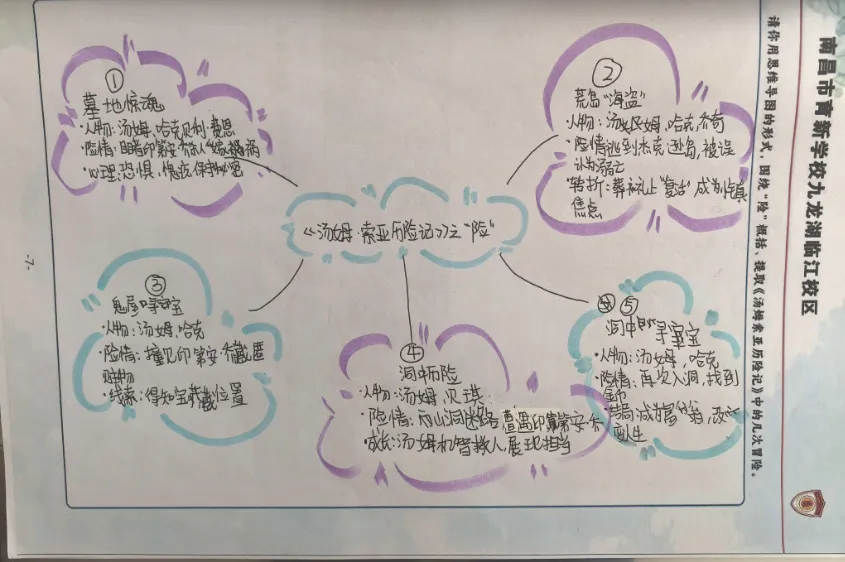 南昌市育新学校九龙湖临江校区
请你用思维导图的形式，围绕“险”概括、提取《汤姆索亚历险记》中的几次冒险。
《汤姆·索亚历险记》之“险”
①
墓地惊魂
·人物：汤姆、哈克贝利·费恩
·险情：目睹印第安·乔杀人嫁祸
·心理：恐惧、保守秘密
②
荒岛“海盗”
·人物：汤姆、哈克、乔奇
·险情：逃到杰克逊岛，被误
认为溺亡
·转折：葬礼上“复活”成为
焦点
③
鬼屋寻宝
·人物：汤姆、哈克
·险情：撞见印第安·乔藏匿
赃物
·线索：得知宝藏位置
④
洞中历险
·人物：汤姆、贝琪
·险情：洞迷路遭遇印第安·乔
·成长：汤姆机智救人，展现担当
⑤
洞中寻宝
·人物：汤姆，哈克
·险情：再次入洞，找到
金币
·结局：成为富翁，改变
人生
-7-